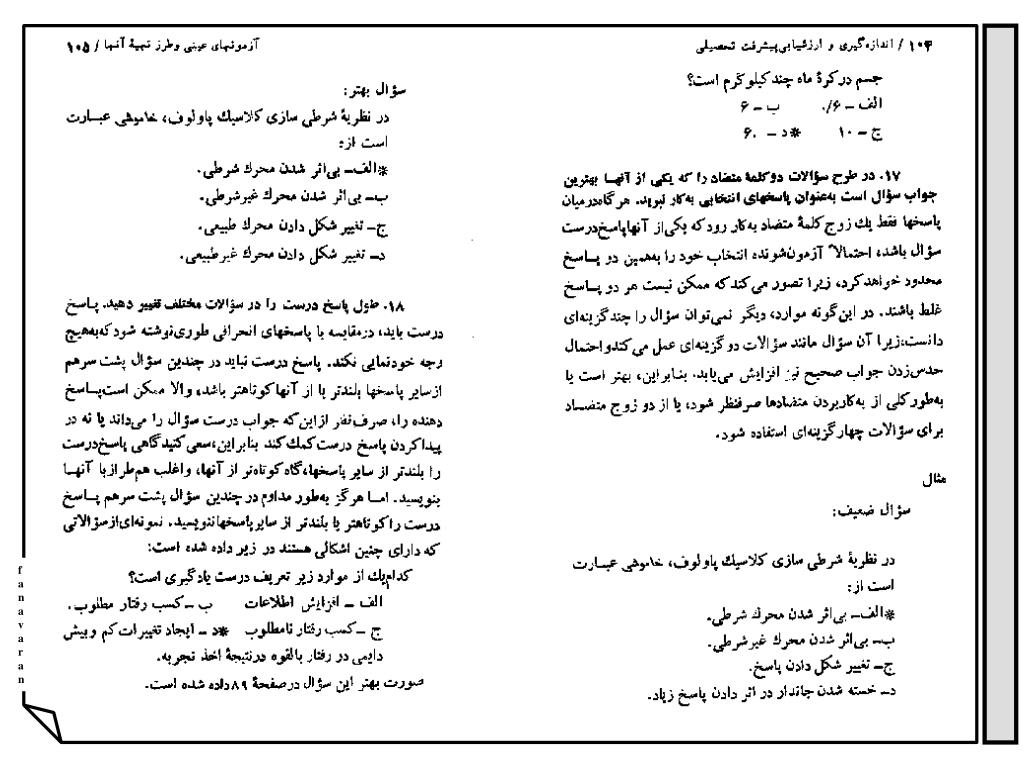 ۱۰۴ / اندازه‌گیری و ارزشیابی پیشرفت تحصیلی
جسم در کرهٔ ماه چند کیلوگرم است؟
الف – ۶/. ب – ۶
ج – ۱۰ *د – ۶۰
۱۷. در طرح سؤالات دو کلمهٔ متضاد را که یکی از آنها بهترین
جواب سؤال است به‌عنوان پاسخهای انتخابی به‌کار نبرید. هر گاه در میان
پاسخها فقط یك زوج کلمهٔ متضاد به‌کار رود که یکی از آنها پاسخ درست
سؤال باشد، احتمالاً آزمون‌شونده انتخاب خود را به‌همین دو پاسخ
محدود خواهد کرد، زیرا تصور می‌کند که ممکن نیست هر دو پاسخ
غلط باشند. در این گونه موارد، دیگر نمی‌توان سؤال را چند گزینه‌ای
دانست، زیرا آن سؤال مانند سؤالات دو گزینه‌ای عمل می‌کند و احتمال
حدس زدن جواب صحیح نیز افزایش می‌یابد. بنابراین، بهتر است یا
به‌طور کلی از به‌کار بردن متضادها صرفنظر شود، یا از دو زوج متضاد
برای سؤالات چهار گزینه‌ای استفاده شود.
مثال
سؤال ضعیف:
در نظریهٔ شرطی سازی کلاسیك پاولوف، خاموشی عبارت
است از:
*الف– بی‌اثر شدن محرك شرطی.
ب– بی‌اثر شدن محرك غیرشرطی.
ج– تغییر شکل دادن پاسخ.
د– خسته شدن جاندار در اثر دادن پاسخ زیاد.
آزمونهای عینی و طرز تهیهٔ آنها / ۱۰۵
سؤال بهتر:
در نظریهٔ شرطی سازی کلاسیك پاولوف، خاموشی عبارت
است از:
*الف– بی‌اثر شدن محرك شرطی.
ب– بی‌اثر شدن محرك غیرشرطی.
ج– تغییر شکل دادن محرك طبیعی.
د– تغییر شکل دادن محرك غیرطبیعی.
۱۸. طول پاسخ درست را در سؤالات مختلف تغییر دهید. پاسخ
درست باید، در مقایسه با پاسخهای انحرافی طوری نوشته شود که به‌هیچ
وجه خودنمایی نکند. پاسخ درست نباید در چندین سؤال پشت سرهم
از سایر پاسخها بلندتر یا از آنها کوتاهتر باشد، والا ممکن است پاسخ
دهنده را، صرف‌نظر از این که جواب درست سؤال را می‌داند یا نه در
پیدا کردن پاسخ درست کمك کند بنابراین، سعی کنید گاهی پاسخ درست
را بلندتر از سایر پاسخها، گاه کوتاه‌تر از آنها، و اغلب هم‌طراز با آنها
بنویسید. اما هرگز به‌طور مداوم در چندین سؤال پشت سرهم پاسخ
درست را کوتاهتر یا بلندتر از سایر پاسخها ننویسید. نمونه‌ای از سؤالاتی
که دارای چنین اشکالی هستند در زیر داده شده است:
کدام یك از موارد زیر تعریف درست یادگیری است؟
الف – افزایش اطلاعات ب – کسب رفتار مطلوب.
ج – کسب رفتار نامطلوب *د – ایجاد تغییرات کم و بیش
دایمی در رفتار بالقوه در نتیجهٔ اخذ تجربه.
صورت بهتر این سؤال در صفحهٔ ۸۹ داده شده است.
fanavaran